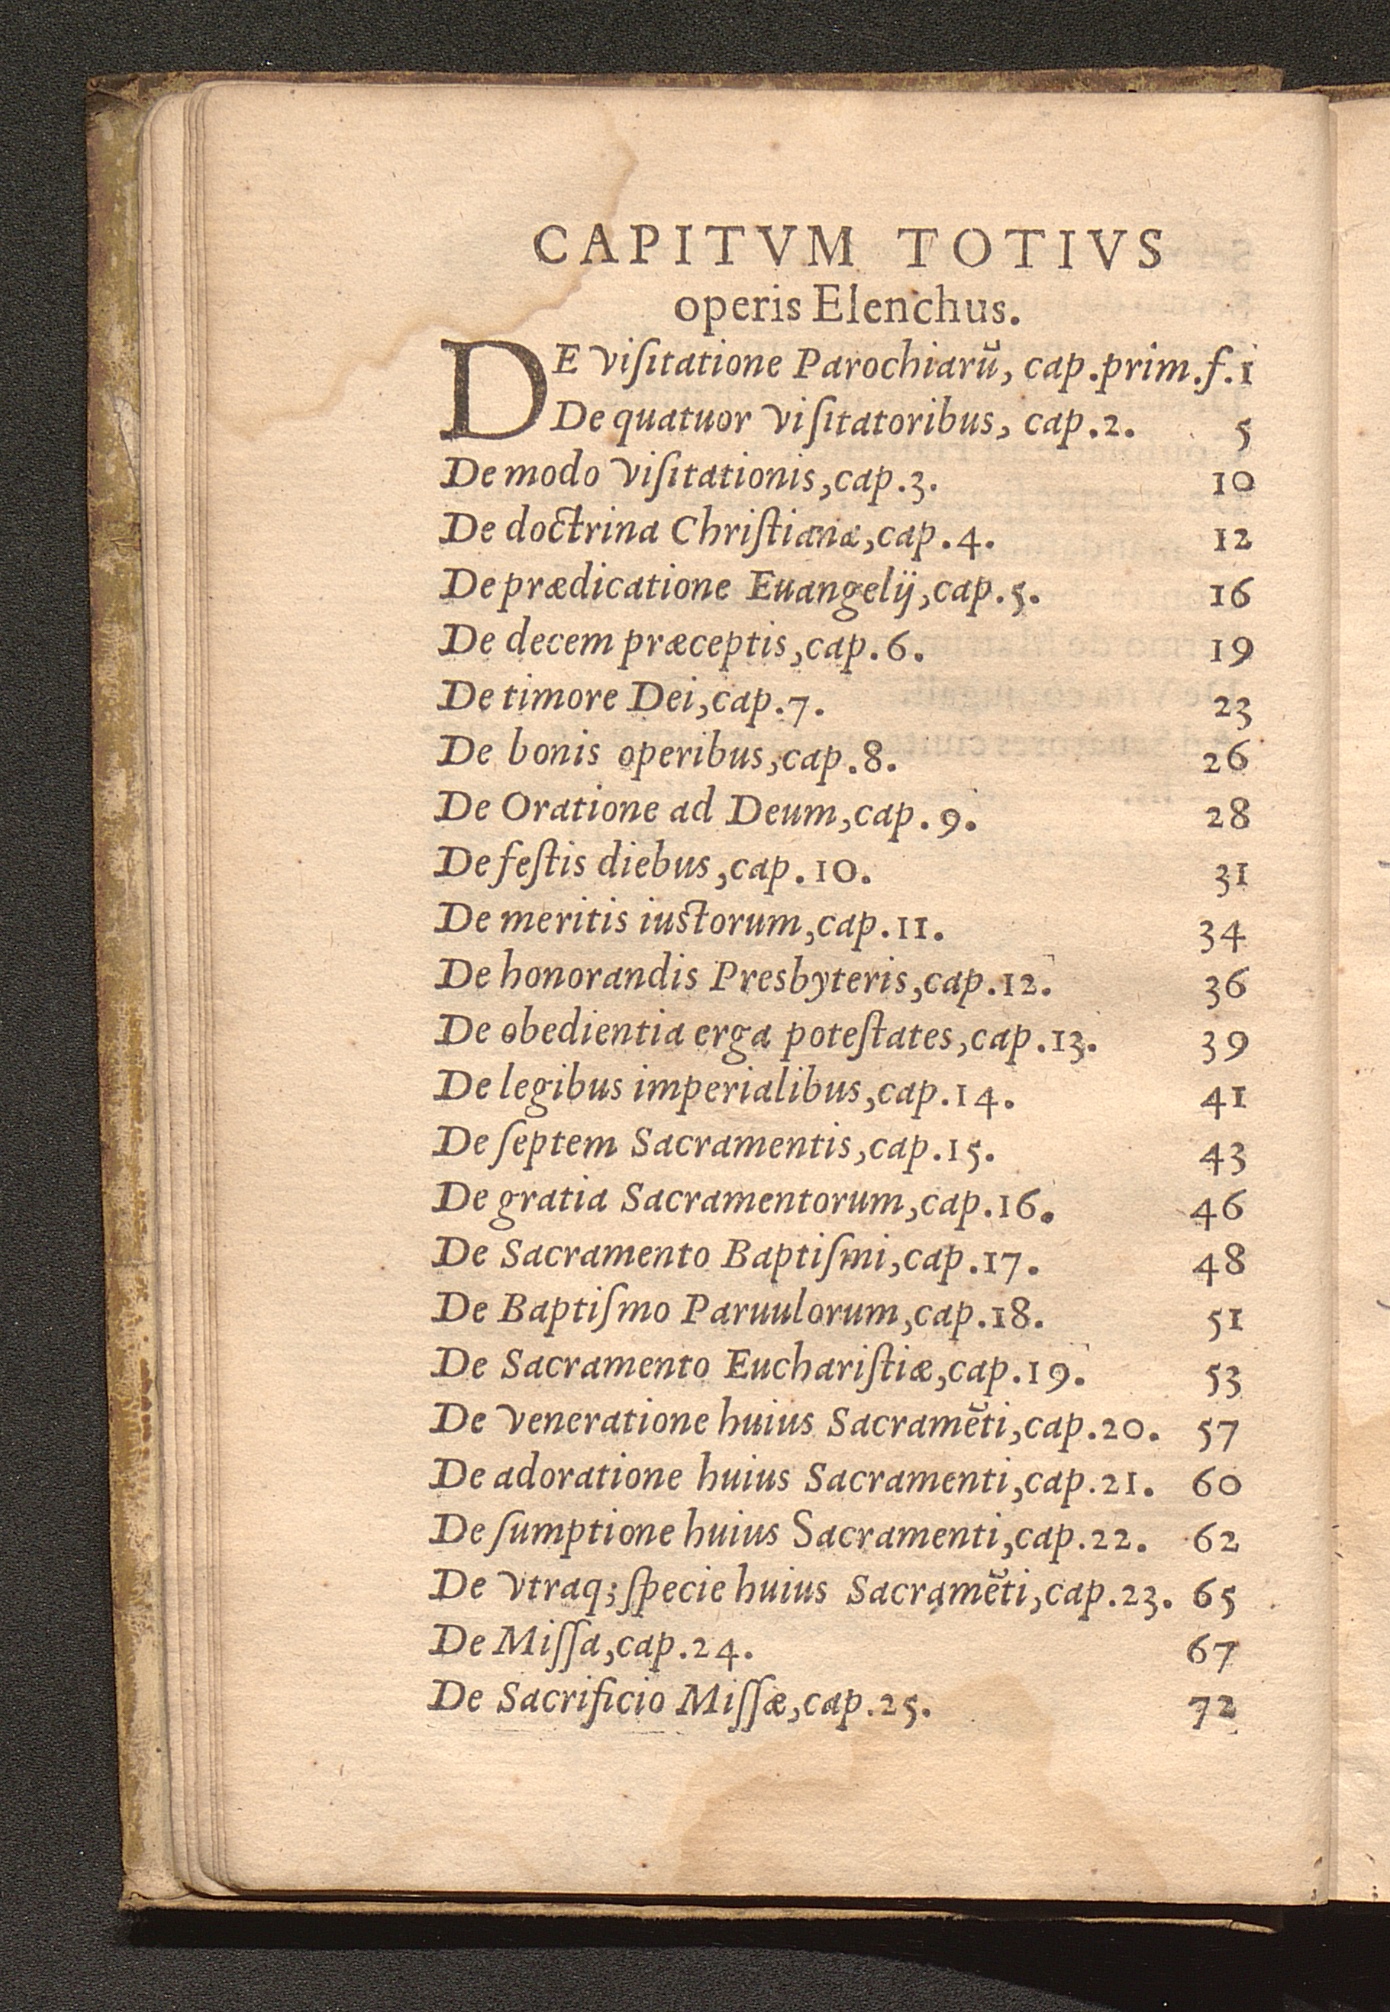 CAPITVM TOTIVS
operis Elenchus.
DE viſitatione Parochiarũ, cap.prim.f.1
De quatuor viſitatoribus, cap.2. 5
De modo viſitationis,cap.3. 10
De doctrina Chriſtiana,cap.4. 12
De prædicatione Euangelij,cap.5. 16
De decem præceptis,cap.6. 19
De timore Dei,cap.7. 23
De bonis operibus,cap.8. 26
De Oratione ad Deum,cap.9. 28
De feſtis diebus,cap.10. 31
De meritis iustorum,cap.11. 34
De honorandis Presbyteris,cap.12. 36
De obedientia erga poteſtates,cap.13. 39
De legibus imperialibus,cap.14. 41
De ſeptem Sacramentis,cap.15. 43
De gratia Sacramentorum,cap.16. 46
De Sacramento Baptiſmi,cap.17. 48
De Baptiſmo Paruulorum,cap.18. 51
De Sacramento Euchariſtiæ,cap.19. 53
De veneratione huius Sacramẽti,cap.20. 57
De adoratione huius Sacramenti,cap.21. 60
De ſumptione huius Sacramenti,cap.22. 62
De vtraq; ſpecie huius Sacramẽti,cap.23. 65
De Miſſa,cap.24. 67
De Sacrificio Miſſæ,cap.25. 72